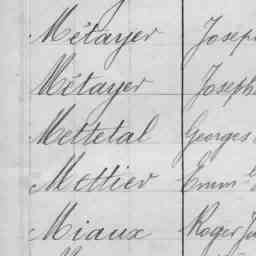 Métayer Josep
Métayer Joseph
Mettetal Georges
Mottier Emm.
Miaux Roger Ju